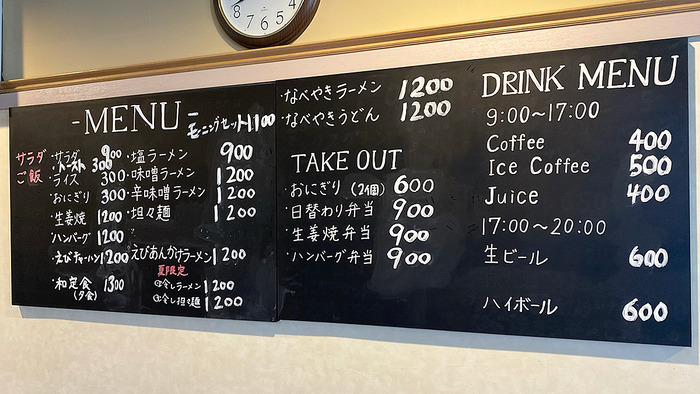 8 7 6 5 4
-MENU-
モーニングセット1100
サラダ
ご飯
・サラダ 900
トースト 300
・ライス 300
・おにぎり 300
・生姜焼 1200
・ハンバーグ 1200
・えびチャーハン 1200
・和定食 1300
(夕食)
・塩ラーメン 900
・味噌ラーメン 1200
・辛味噌ラーメン 1200
・坦々麺 1200
えびあんかけラーメン 1200
夏限定
冷しラーメン 1200
冷し担々麺 1200
・なべやきラーメン 1200
・なべやきうどん 1200
TAKE OUT
・おにぎり (2個) 600
・日替わり弁当 900
・生姜焼弁当 900
・ハンバーグ弁当 900
DRINK MENU
9:00〜17:00
Coffee 400
Ice Coffee 500
Juice 400
17:00〜20:00
生ビール 600
ハイボール 600